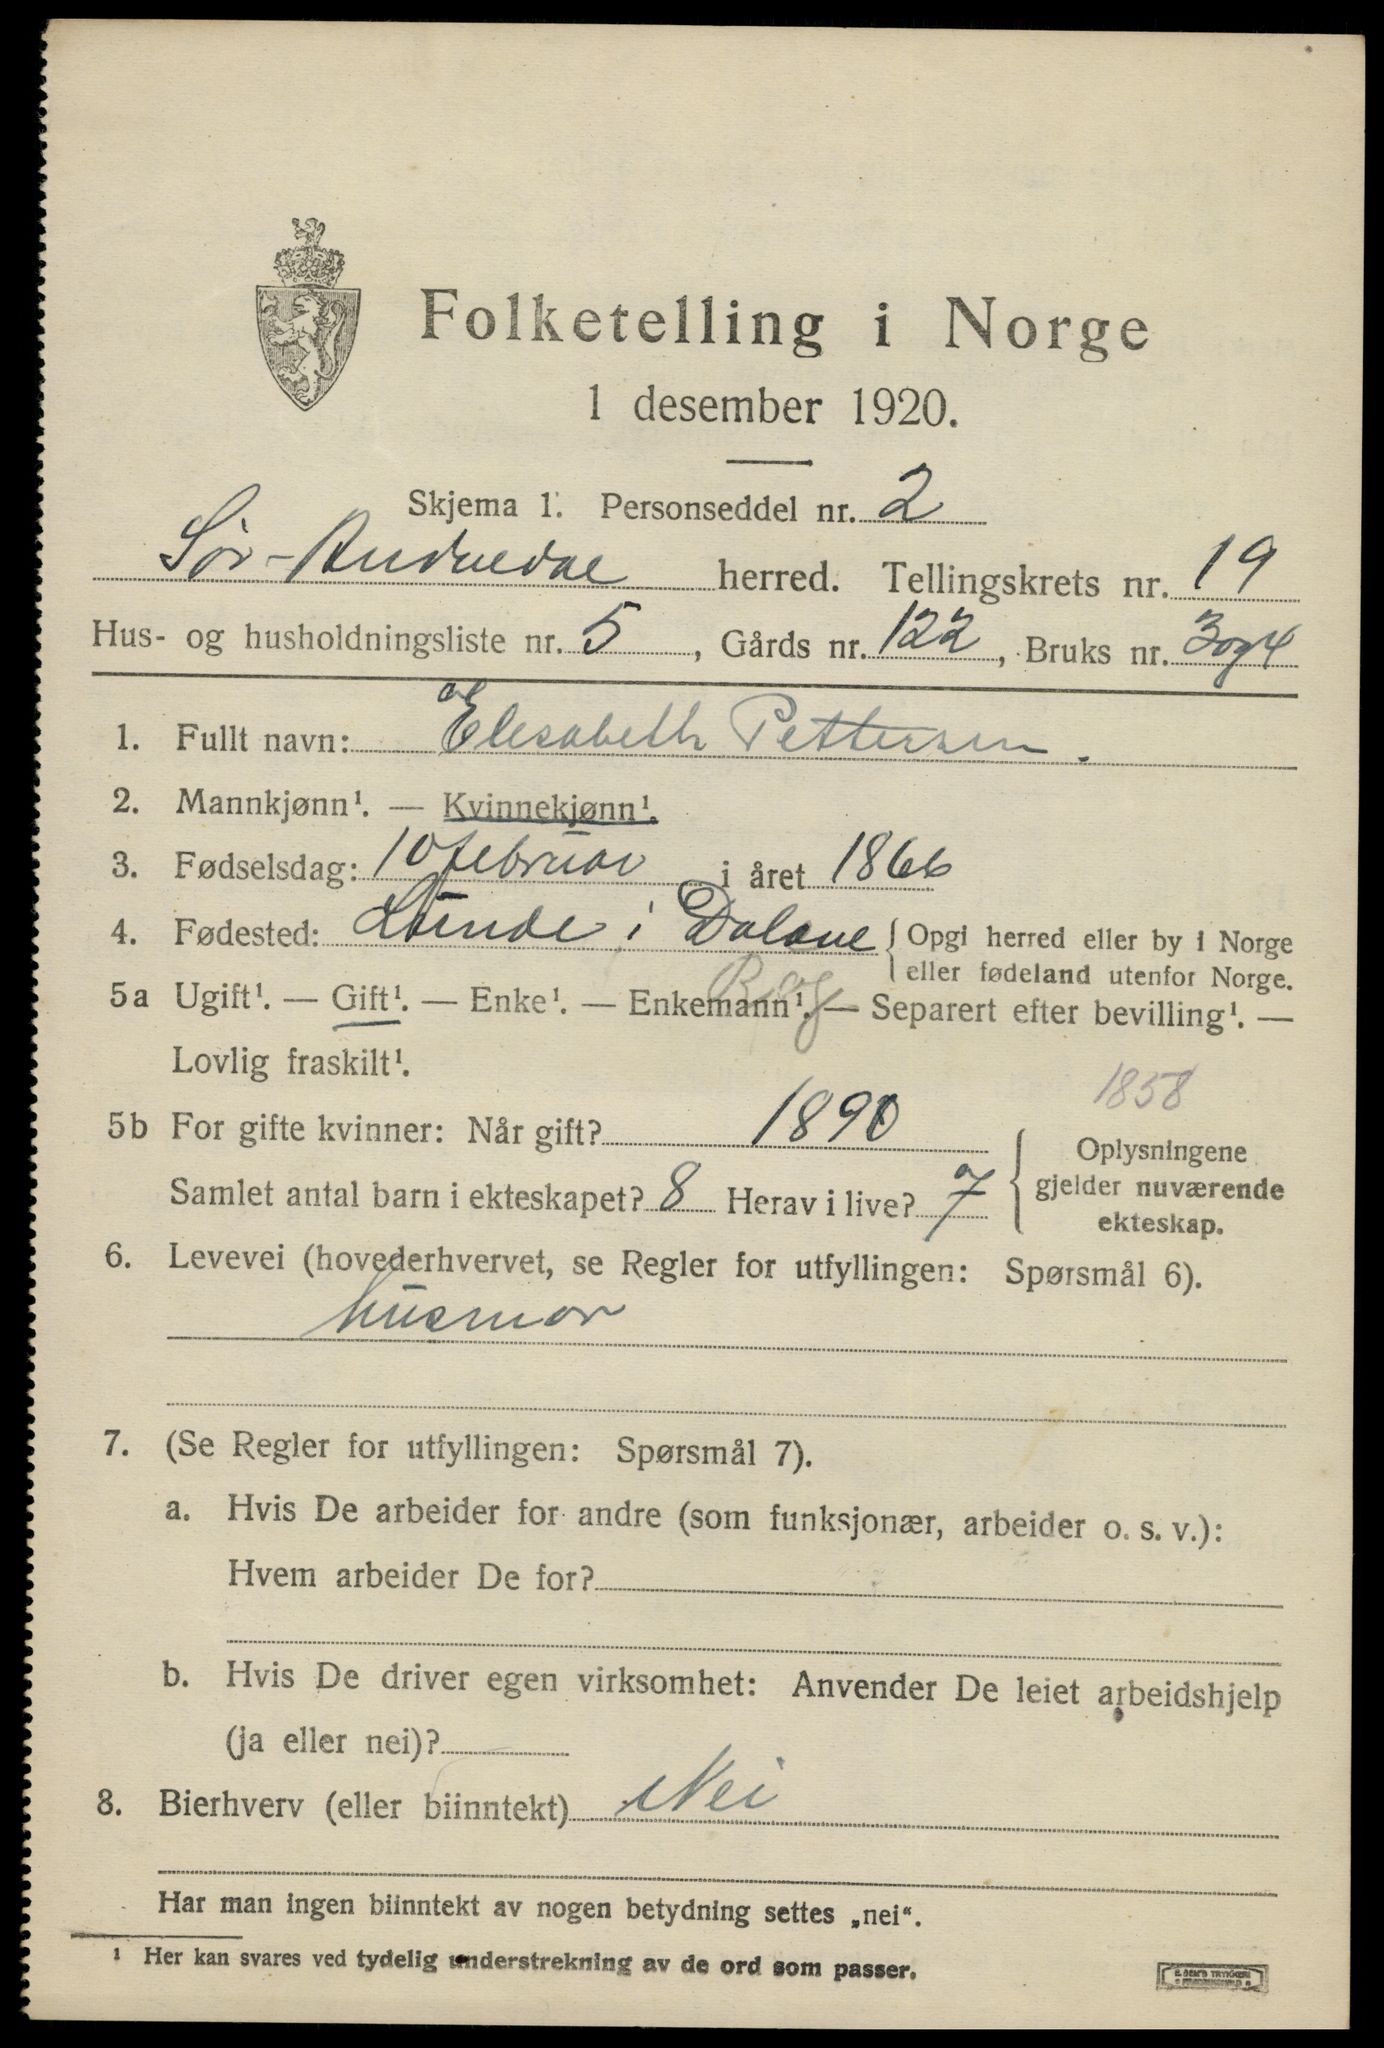 Folketelling i Norge
1 desember 1920.
Skjema 1. Personseddel nr. 2
Sør-Audnedal herred. Tellingskrets nr. 19
Hus- og husholdningsliste nr. 5, Gårds nr. 122, Bruks nr. 3 og 4
1. Fullt navn: Elesabeth Pettersen.
2. Mannkjønn¹. — Kvinnekjønn¹.
3. Fødselsdag: 10 februar i året 1866
4. Fødested: Lunde i Dalane { Opgi herred eller by i Norge
eller fødeland utenfor Norge.
Rog
5a Ugift¹. — Gift¹. — Enke¹. — Enkemann¹. — Separert efter bevilling¹. —
Lovlig fraskilt¹.
1858
5b For gifte kvinner: Når gift? 1890
Samlet antal barn i ekteskapet? 8 Herav i live? 7
{ Oplysningene
gjelder nuværende
ekteskap.
6. Levevei (hovederhvervet, se Regler for utfyllingen: Spørsmål 6).
husmor
7. (Se Regler for utfyllingen: Spørsmål 7).
a. Hvis De arbeider for andre (som funksjonær, arbeider o. s. v.):
Hvem arbeider De for?
b. Hvis De driver egen virksomhet: Anvender De leiet arbeidshjelp
(ja eller nei)?
8. Bierhverv (eller biinntekt) Nei
Har man ingen biinntekt av nogen betydning settes „nei“.
¹ Her kan svares ved tydelig understrekning av de ord som passer.